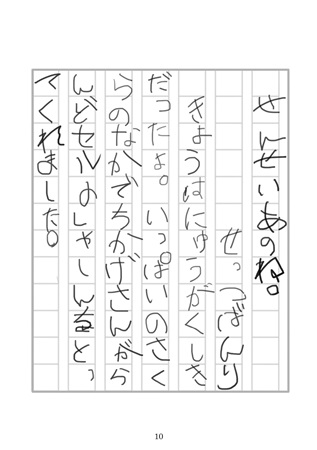 せんせいあのね。
せっつばんり
きょうはにゅうがくしき
だったよ。いっぱいのさく
らのなかでちかげさんがら
んどセルのしゃしんをとっ
てくれました。
10